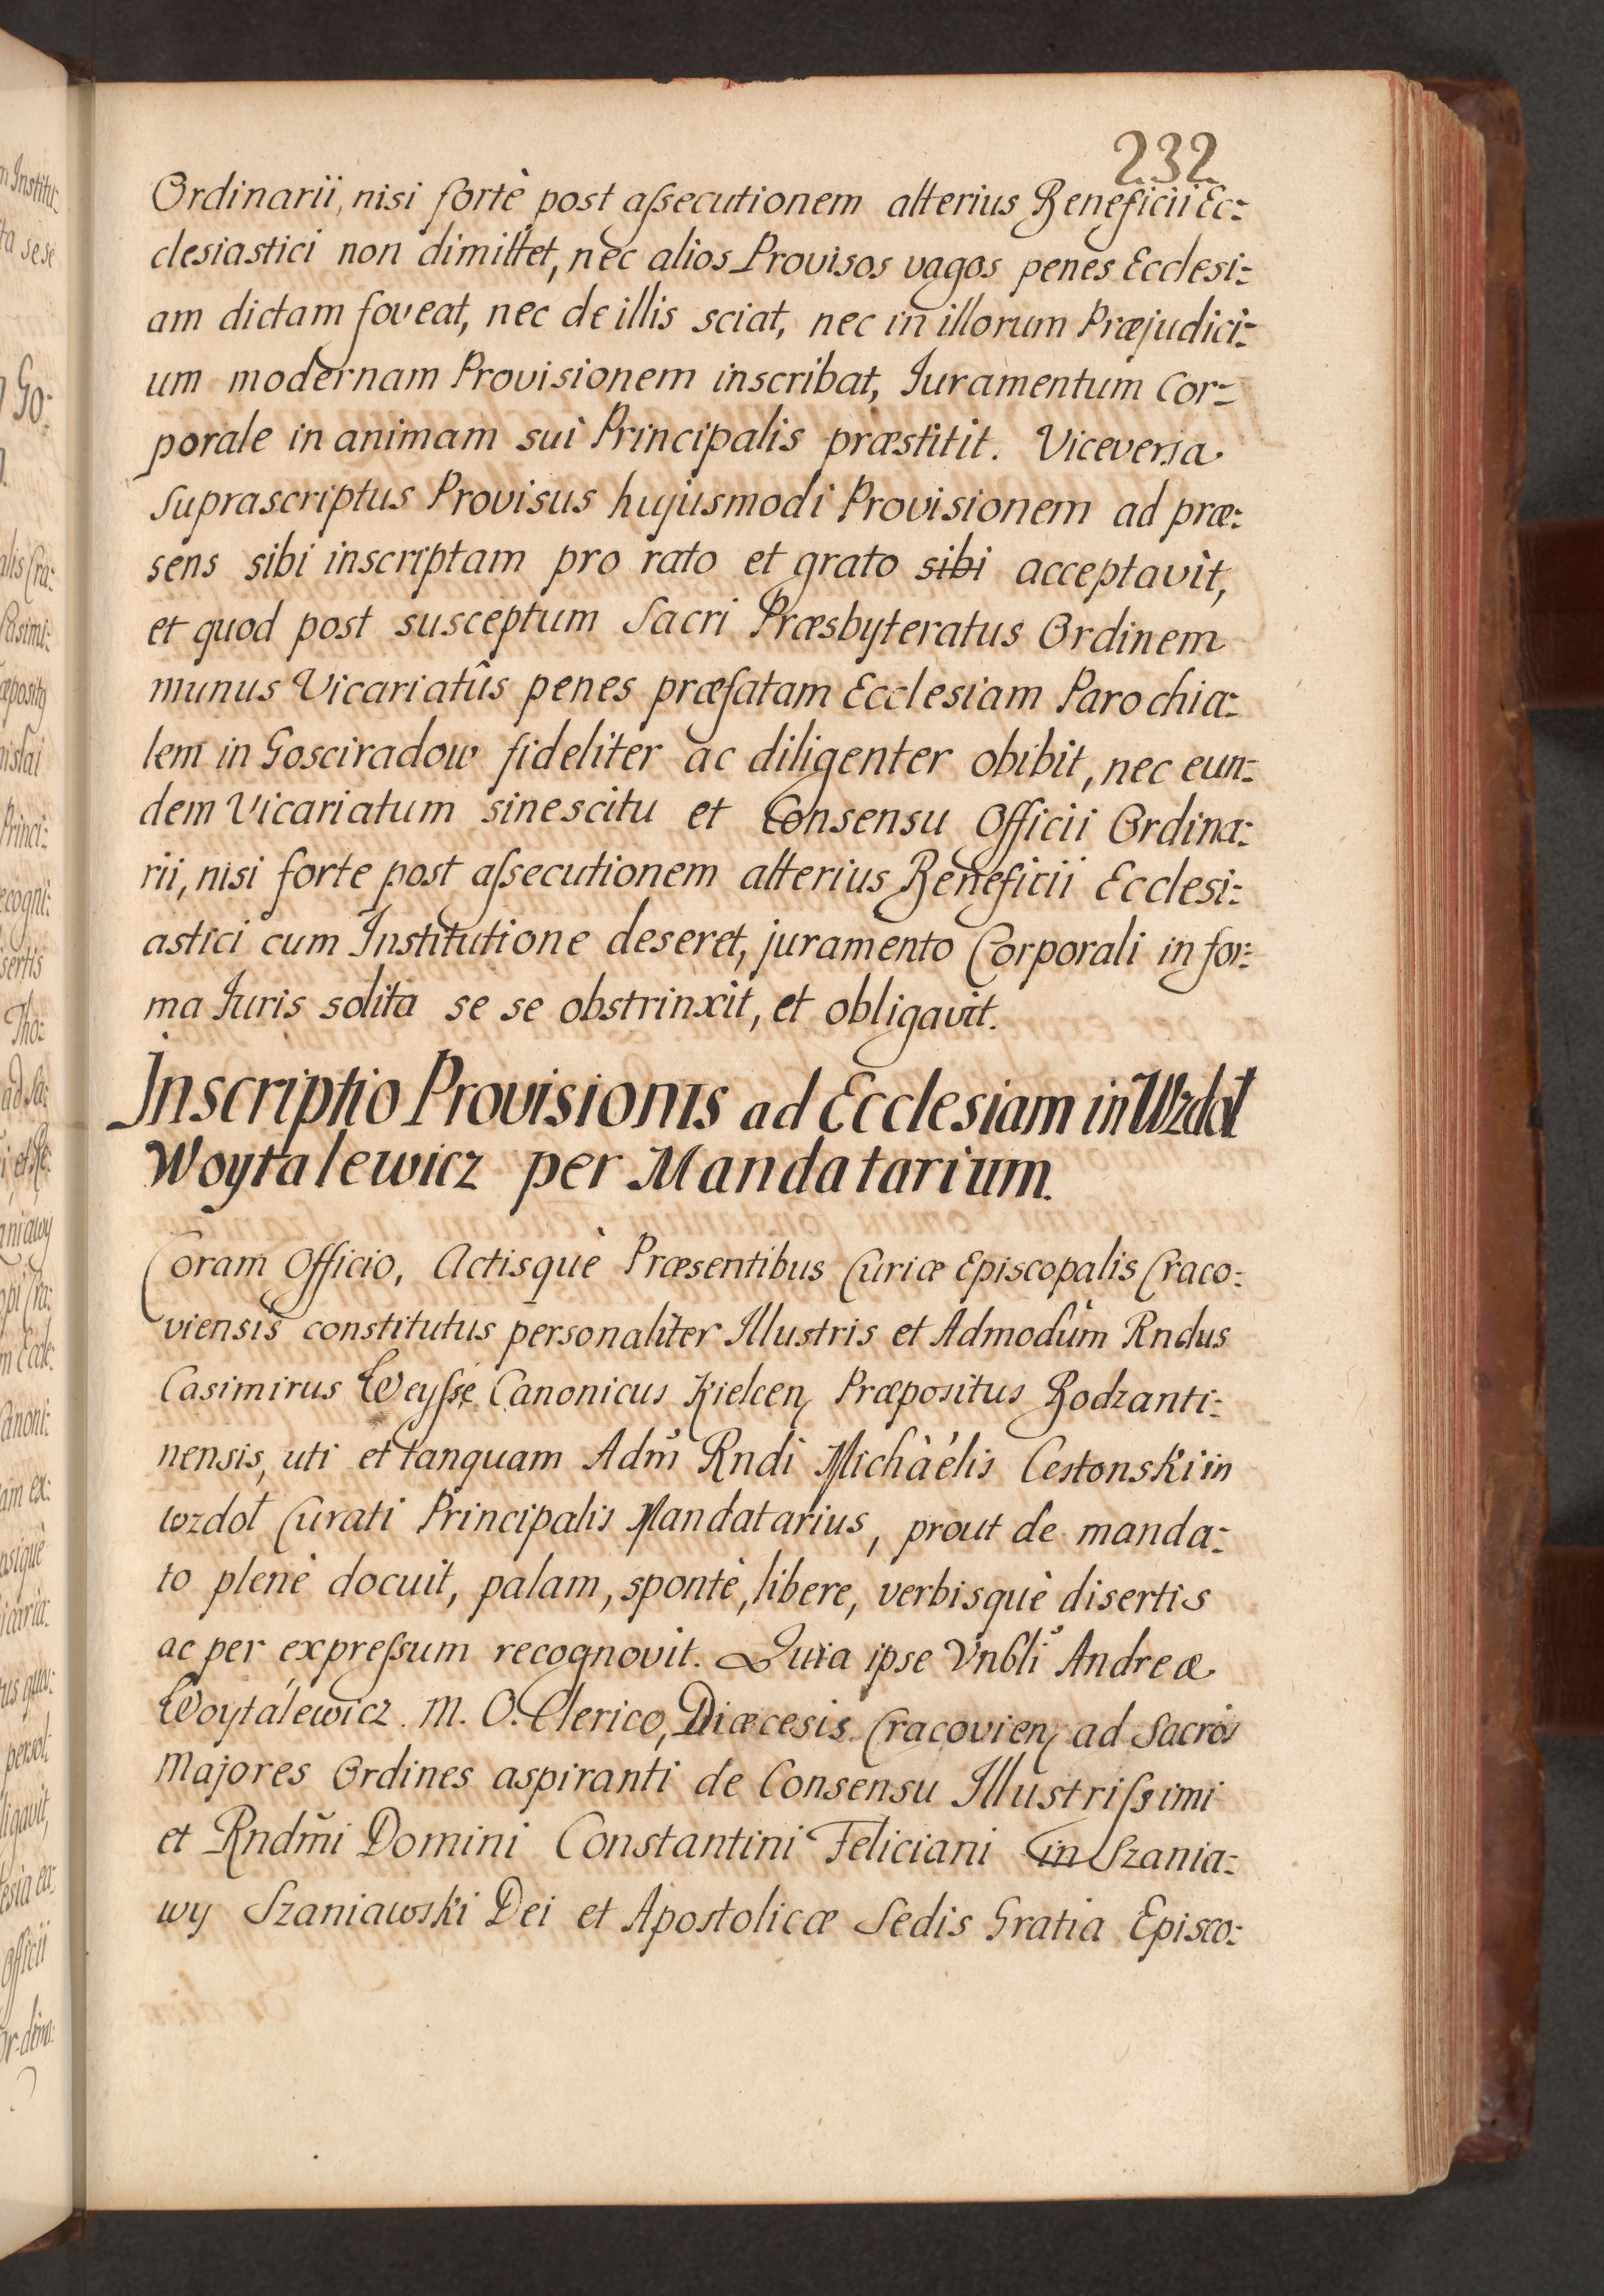 232
Ordinarii, nisi fortè post aſsecutionem alterius Beneficii Ec:
clesiastici non dimittet, nec alios Provisos vagos penes Ecclesi:
am dictam foveat, nec de illis sciat, nec in illorum Præjudici:
um modernam Provisionem inscribat, Iuramentum Cor:
porale in animam sui Principalis præstitit. Viceversa
suprascriptus Provisus hujusmodi Provisionem ad præ:
sens sibi inscriptam pro rato et grato sibi acceptavit,
et quod post susceptum Sacri Præsbyteratus Ordinem
munus Vicariatûs penes præfatam Ecclesiam Parochia:
lem in Gosciradow fideliter ac diligenter obibit, nec eun:
dem Vicariatum sine scitu et Consensu Officii Ordina:
rii, nisi forte post aſsecutionem alterius Beneficii Ecclesi:
astici cum Institutione deseret, juramento Corporali in for:
ma Iuris solita se se obstrinxit, et obligavit.
Inscriptio Provisionis ad Ecclesiam in Wzdoł
Woytalewicz per Mandatarium.
Coram Officio, Actisquè Præsentibus Curiæ Episcopalis Craco:
viensis constitutus personaliter Illustris et Admodùm Rndus
Casimirus Weyſse Canonicus Kielcen, Præpositus Bodzanti:
nensis, uti et tanquam Adm̃ Rndi Michàélis Cestonski in
wzdoł Curati Principalis Mandatarius, prout de manda:
to plenè docuit, palam, spontè, libere, verbisquè disertis
ac per expreſsum recognovit. Quia ipse Vnbli Andreæ
Woytálewicz M. O. Clerico, Diæcesis Cracovien, ad Sacros
Majores Ordines aspiranti de Consensu Illustriſsimi
et Rndm̃i Domini Constantini Feliciani in Szania:
wy Szaniawski Dei et Apostolicæ Sedis Gratia Episco: